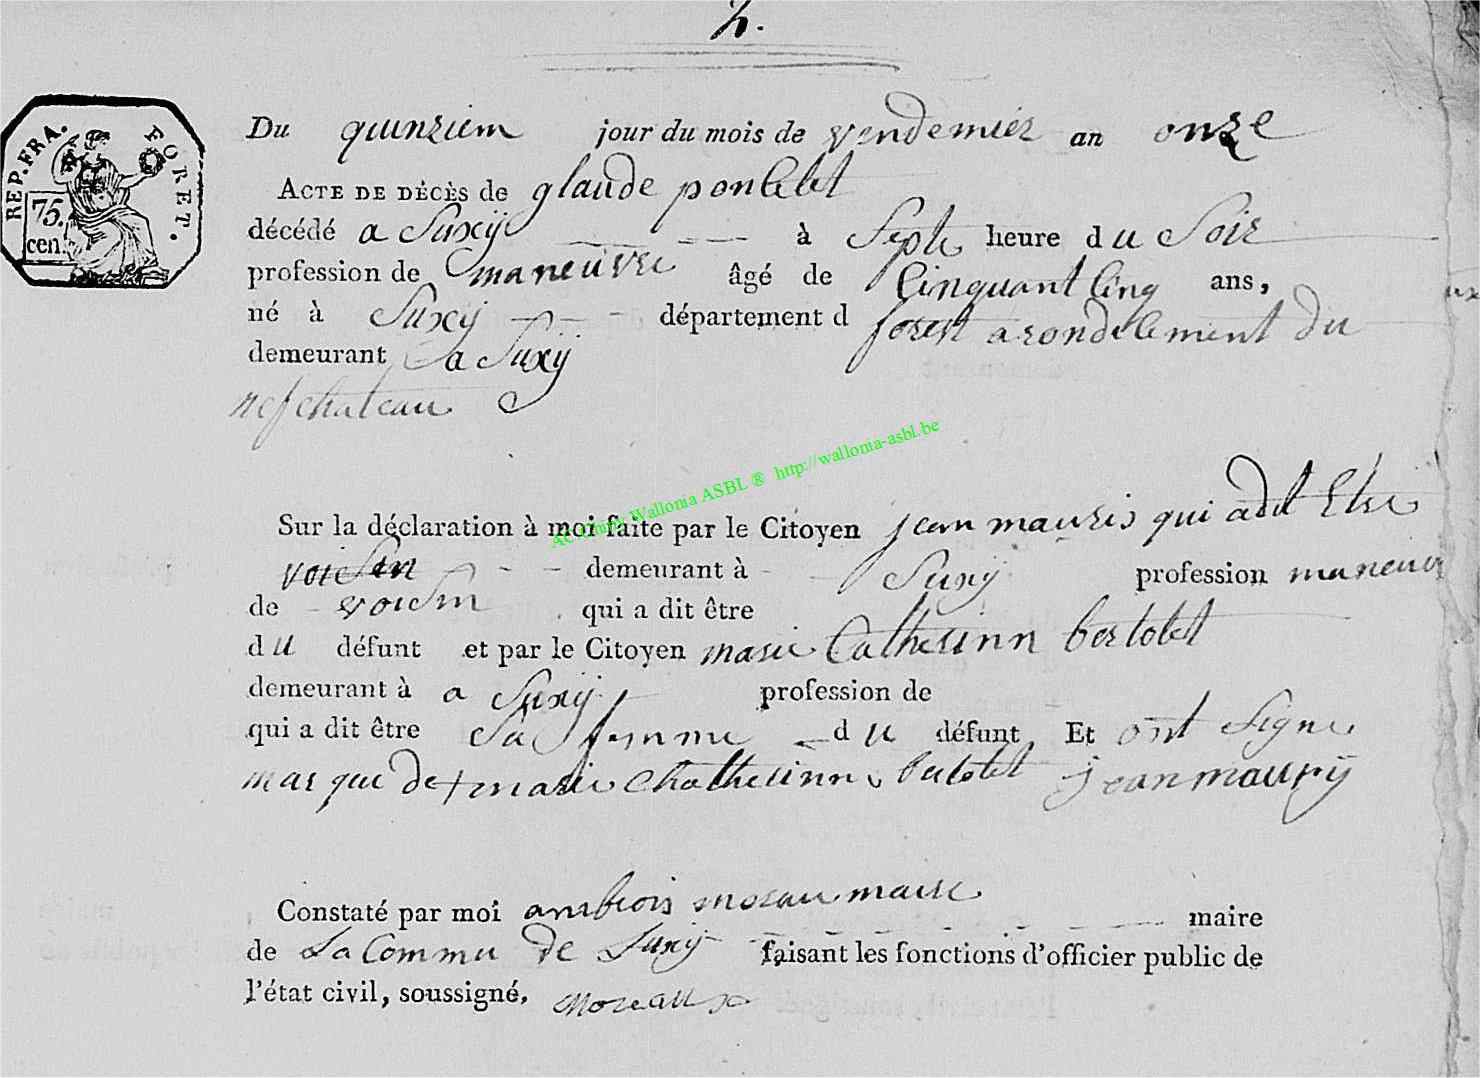 2.
REP. FRA. FORET.
75.
cen.
Du quinziem jour du mois de vendemier an onze
ACTE DE DÉCÈS de glaude ponlelet
décédé a Suxÿ à Septe heure du Soir
profession de maneuvre âgé de Cinquant Cinq ans,
né à Suxÿ département d forest arondelement du
demeurant a Suxÿ
nefchateau
AC Chiny Wallonia ASBL ® http://wallonia-asbl.be
Sur la déclaration à moi faite par le Citoyen jean mauris qui a dit Etre
voisin demeurant à Suxÿ profession maneuvr
de voisin qui a dit être
du défunt et par le Citoyen marie Catherinn bertolet
demeurant à a Suxÿ profession de
qui a dit être Sa femme du défunt Et ont Signe
marque de + marie Chatherinn bertolet jean maurÿ
Constaté par moi ambrois moreau maire maire
de La Commu de Suxÿ faisant les fonctions d'officier public de
l'état civil, soussigné, Moreaux